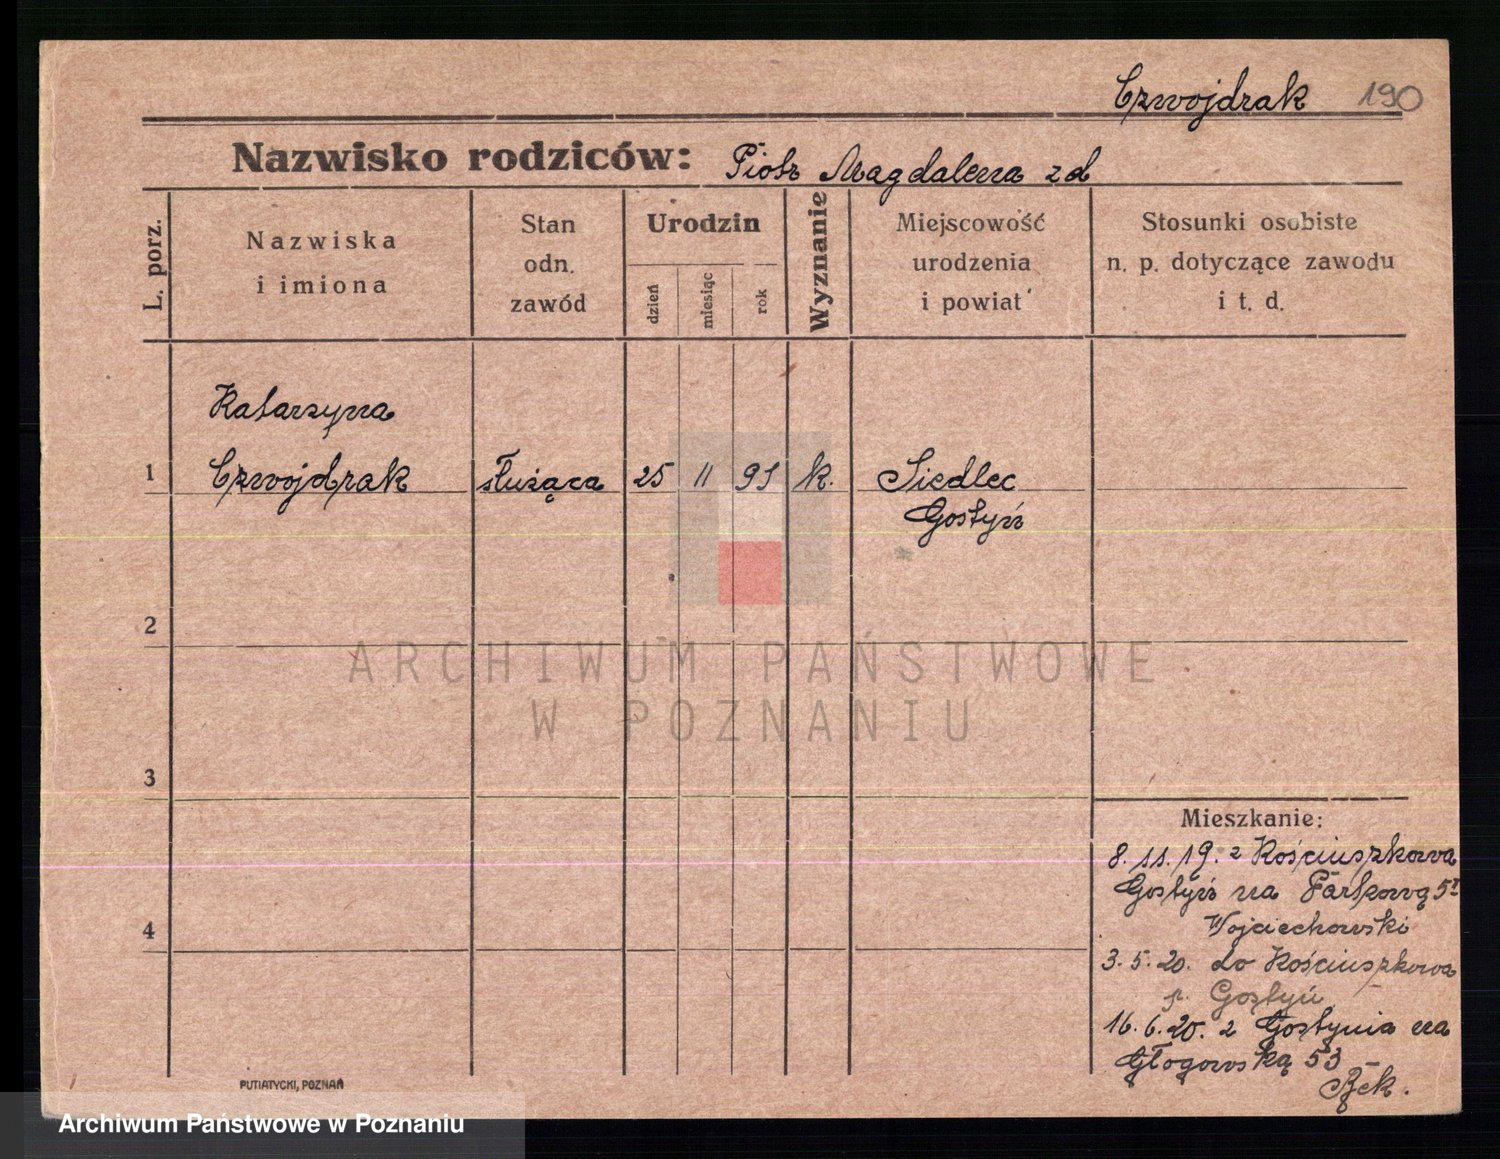 Czwojdrak 190
Nazwisko rodziców: Piotr Magdalena zd
L. porz.
Nazwiska
i imiona
Stan
odn.
zawód
Urodzin
dzień
miesiąc
rok
Wyznanie
Miejscowość
urodzenia
i powiat
Stosunki osobiste
n. p. dotyczące zawodu
i t. d.
Katarzyna
1 Czwojdrak służąca 25 11 91 k. Siedlec
Gostyń
2
ARCHIWUM PAŃSTWOWE
W POZNANIU
3
4
Mieszkanie:
8.11.19. z Kościuszkowa
Gostyń na Parkową 5
Wojciechowski
3.5.20. do Kościuszkowa
p. Gostyń
16.6.20. z Gostynia na
Głogowską 53
PUTIATYCKI, POZNAŃ
Archiwum Państwowe w Poznaniu